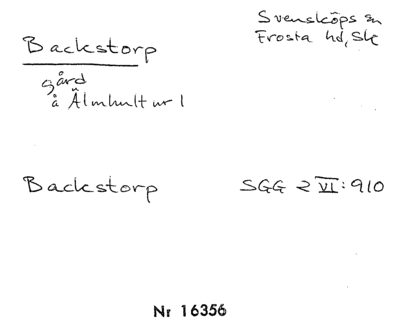 Svensköps sn
Frosta hd, Sk
Backstorp
gård
å Älmhult nr 1
Backstorp
SGG 2 VI: 910
Nr 16356